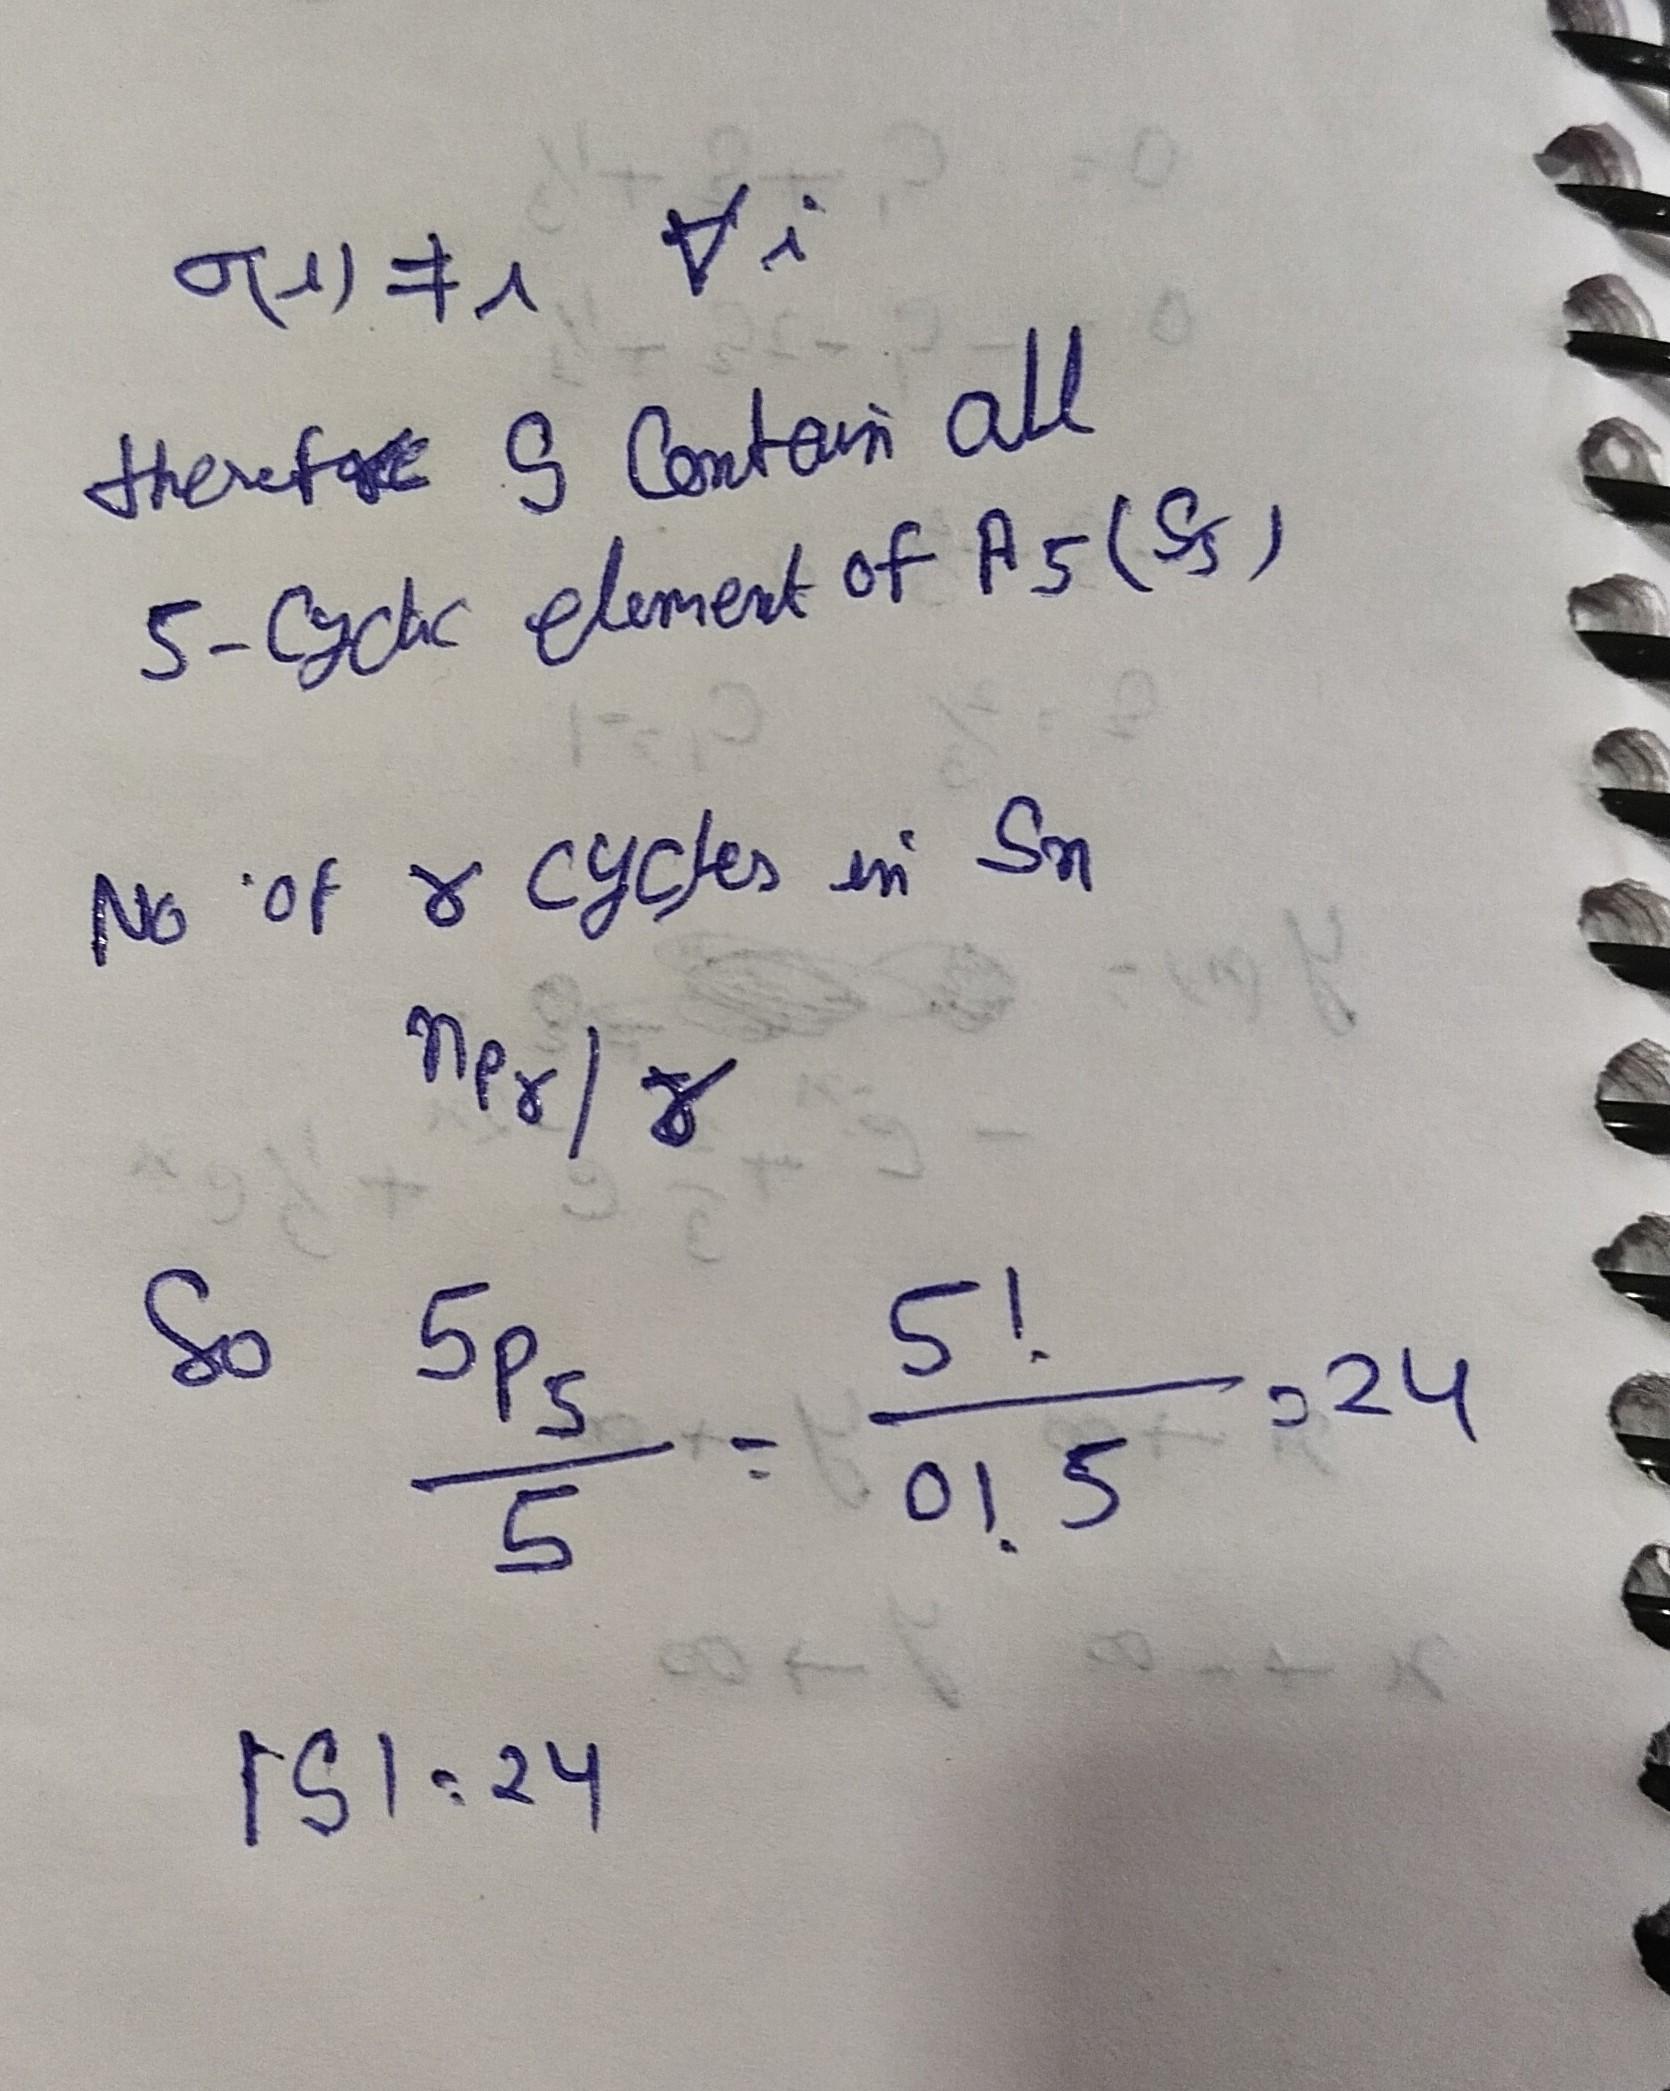 σ(i) ≠ i ∀ i
therefore S Contain all
5-Cyclic element of A5 (S5)
No of r cycles in Sn
nPr / r
So 5P5 / 5 = 5! / 0! 5 = 24
|S| = 24